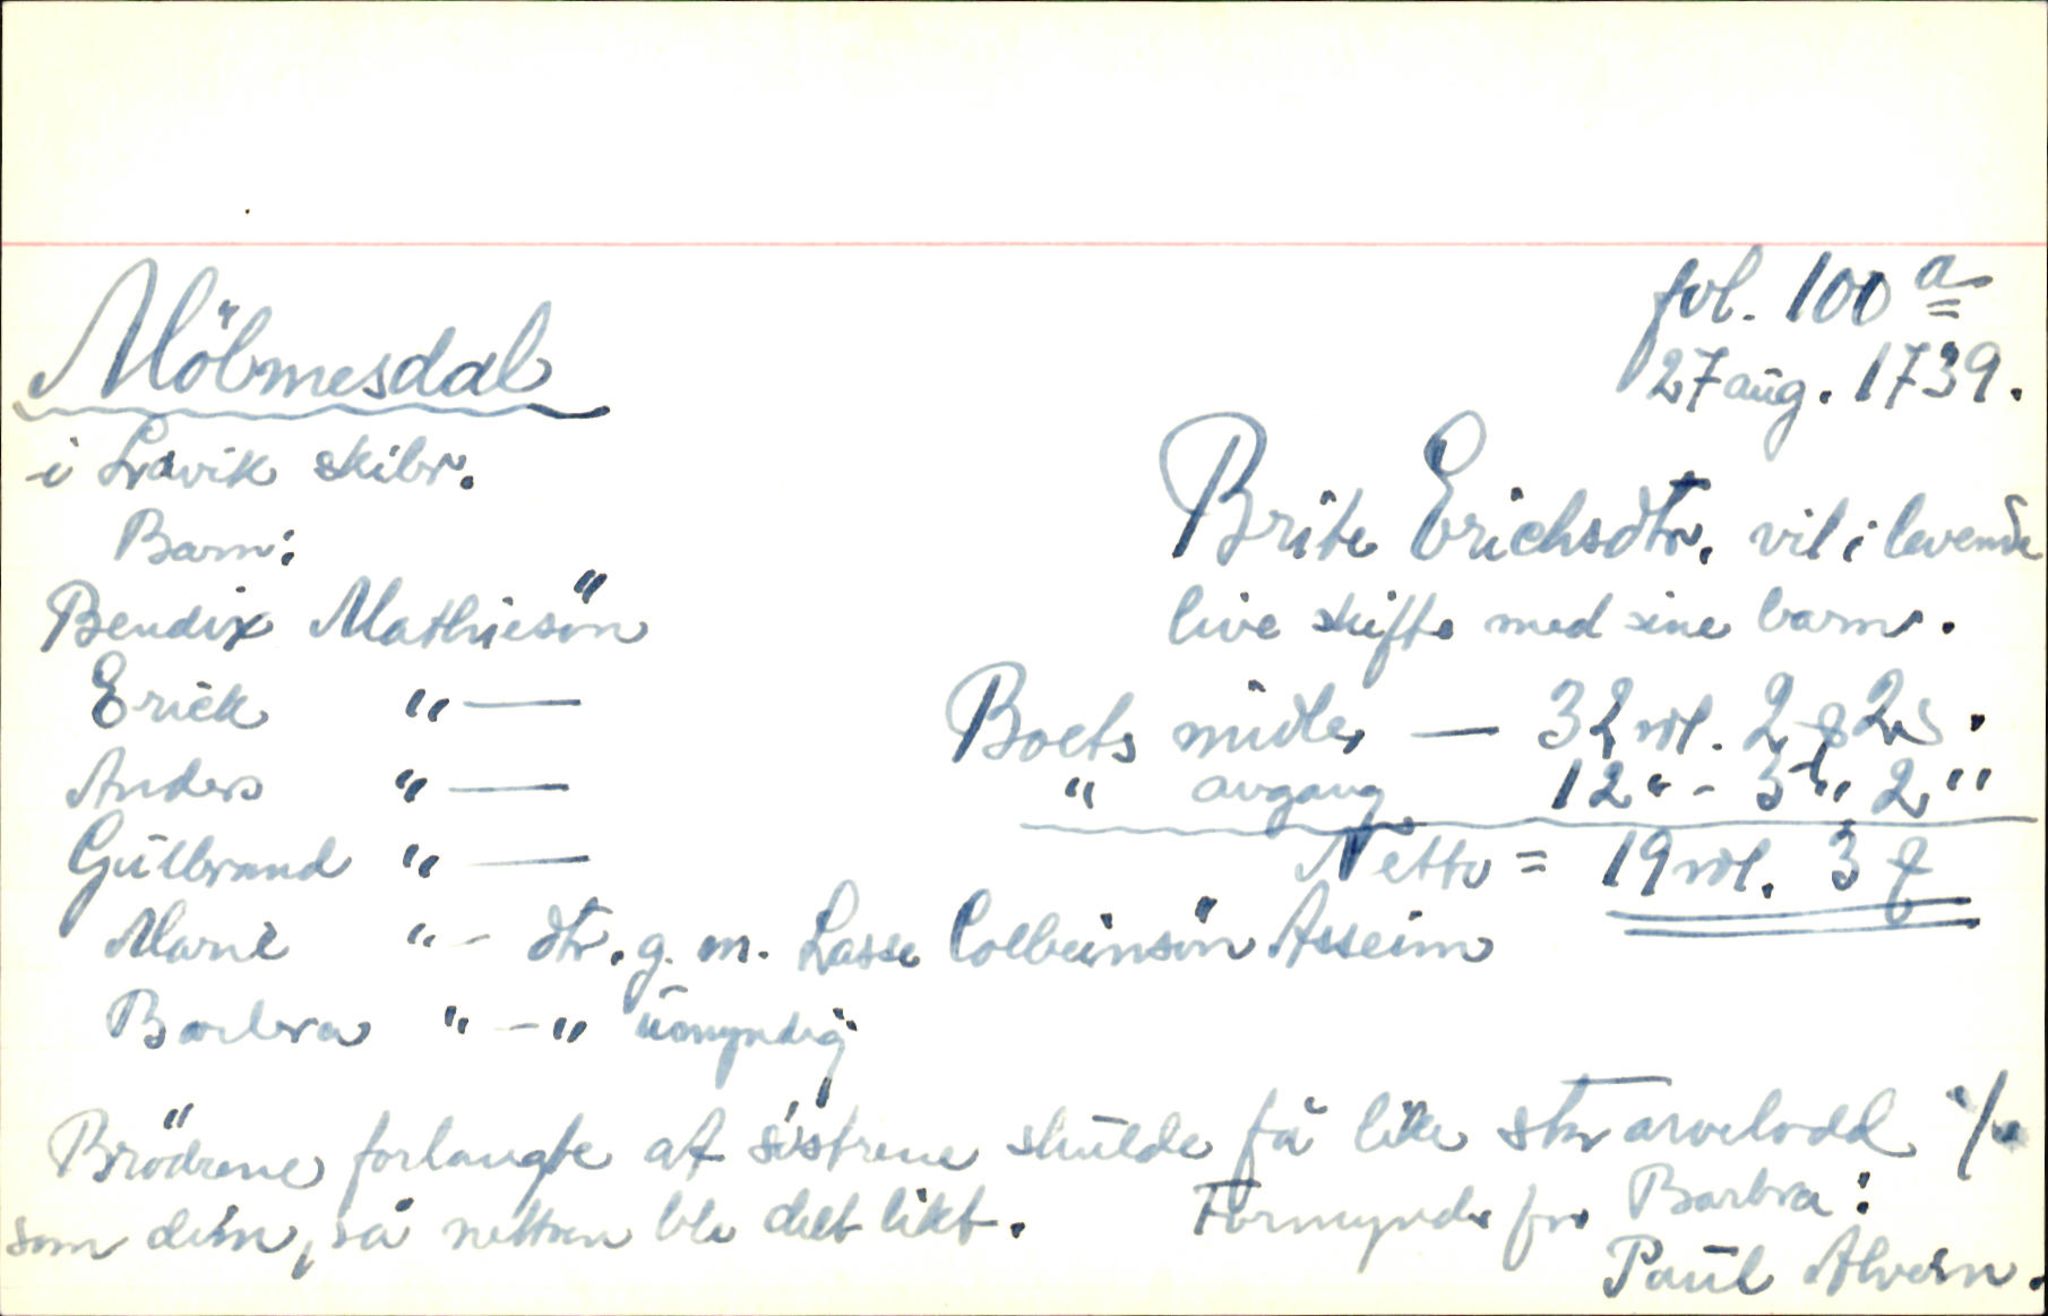 fol. 100 a
27 aug. 1739.
Mölmesdal
i Lavik skibr.
Brite Erichsdtr. vil i levende
live skifte med sine barn.
Barn:
Bendix Mathiesön
Erick " —
Anders " —
Gulbrand " —
Boets midler — 32 rdl. 2 ƒ 2 s.
" avgang 12 " - 3 " 2 "
Netto = 19 rdl. 3 ƒ
Marie " - dtr. g. m. Lasse Colbeinsön Asseim
Barbra " - " umyndig
Brödrene forlangte at söstrene skulde få like stor arvelodd %
som dem, så nettoen ble delt likt. Formynder for Barbra:
Paul Alvern.